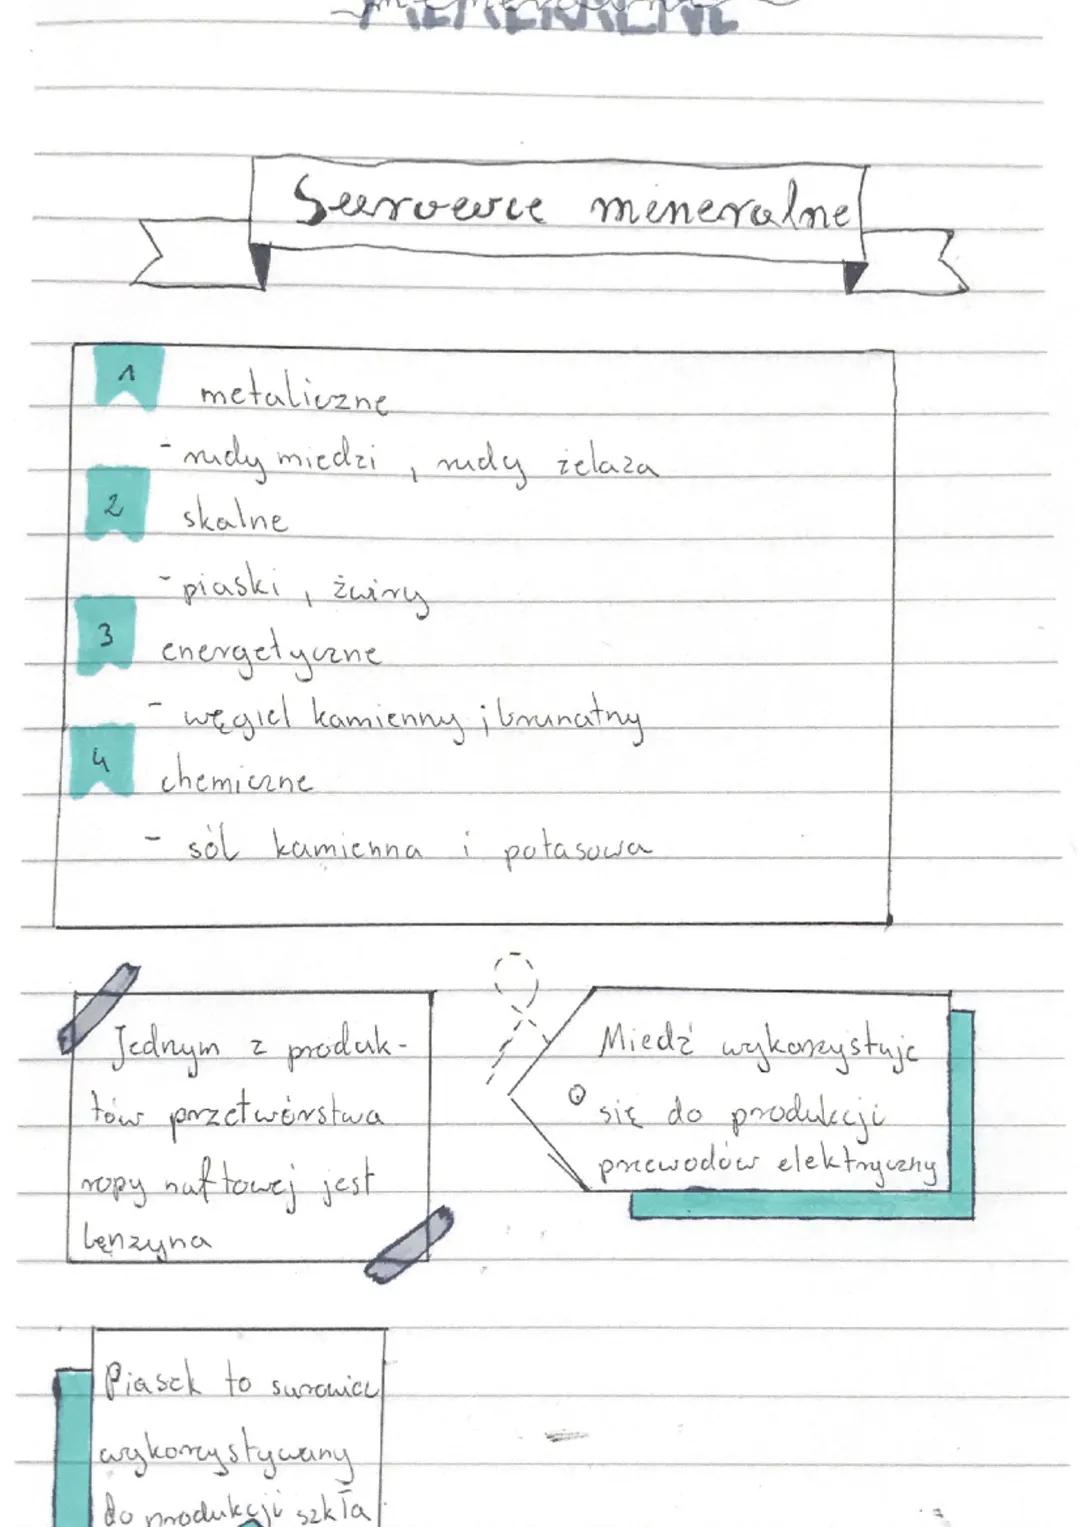 MINERALNE
Surowce mineralne
1
metaliczne
- rudy miedzi, rudy żelaza
2
skalne
- piaski, żwiry
3
energetyczne
- węgiel kamienny i brunatny
4
chemiczne
- sól kamienna i potasowa
Jednym z produk-
tów przetwórstwa
ropy naftowej jest
benzyna
Miedź wykorzystuje
się do produkcji
przewodów elektryczny
Piasek to surowiec
wykorzystywany
do produkcji szkła